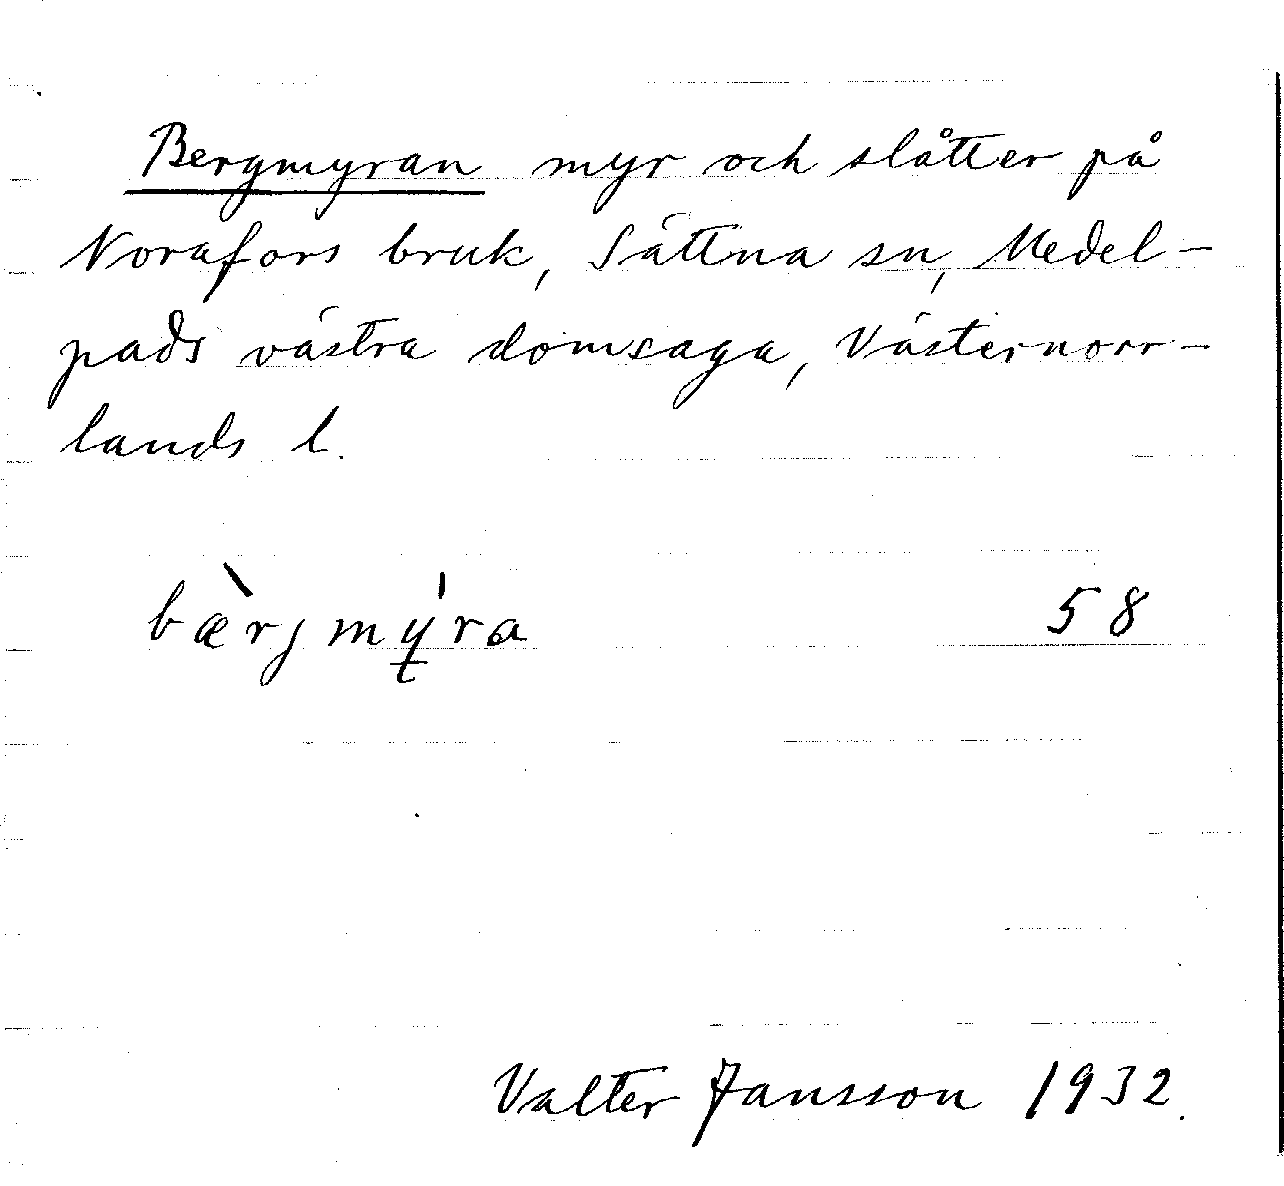 Bergmyran myr och slåtter på
Norafors bruk, Sättna sn, Medel-
pads västra domsaga, Västernorr-
lands l.
bæ̀rjmý̵ra 58
Valter Jansson 1932.